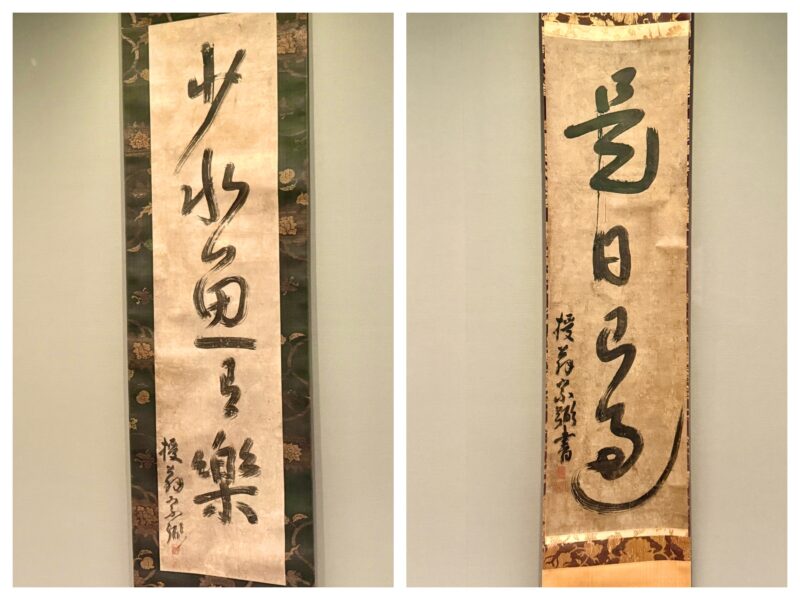 少水魚有樂
授翁宗弼
是日已過
授翁宗弼書